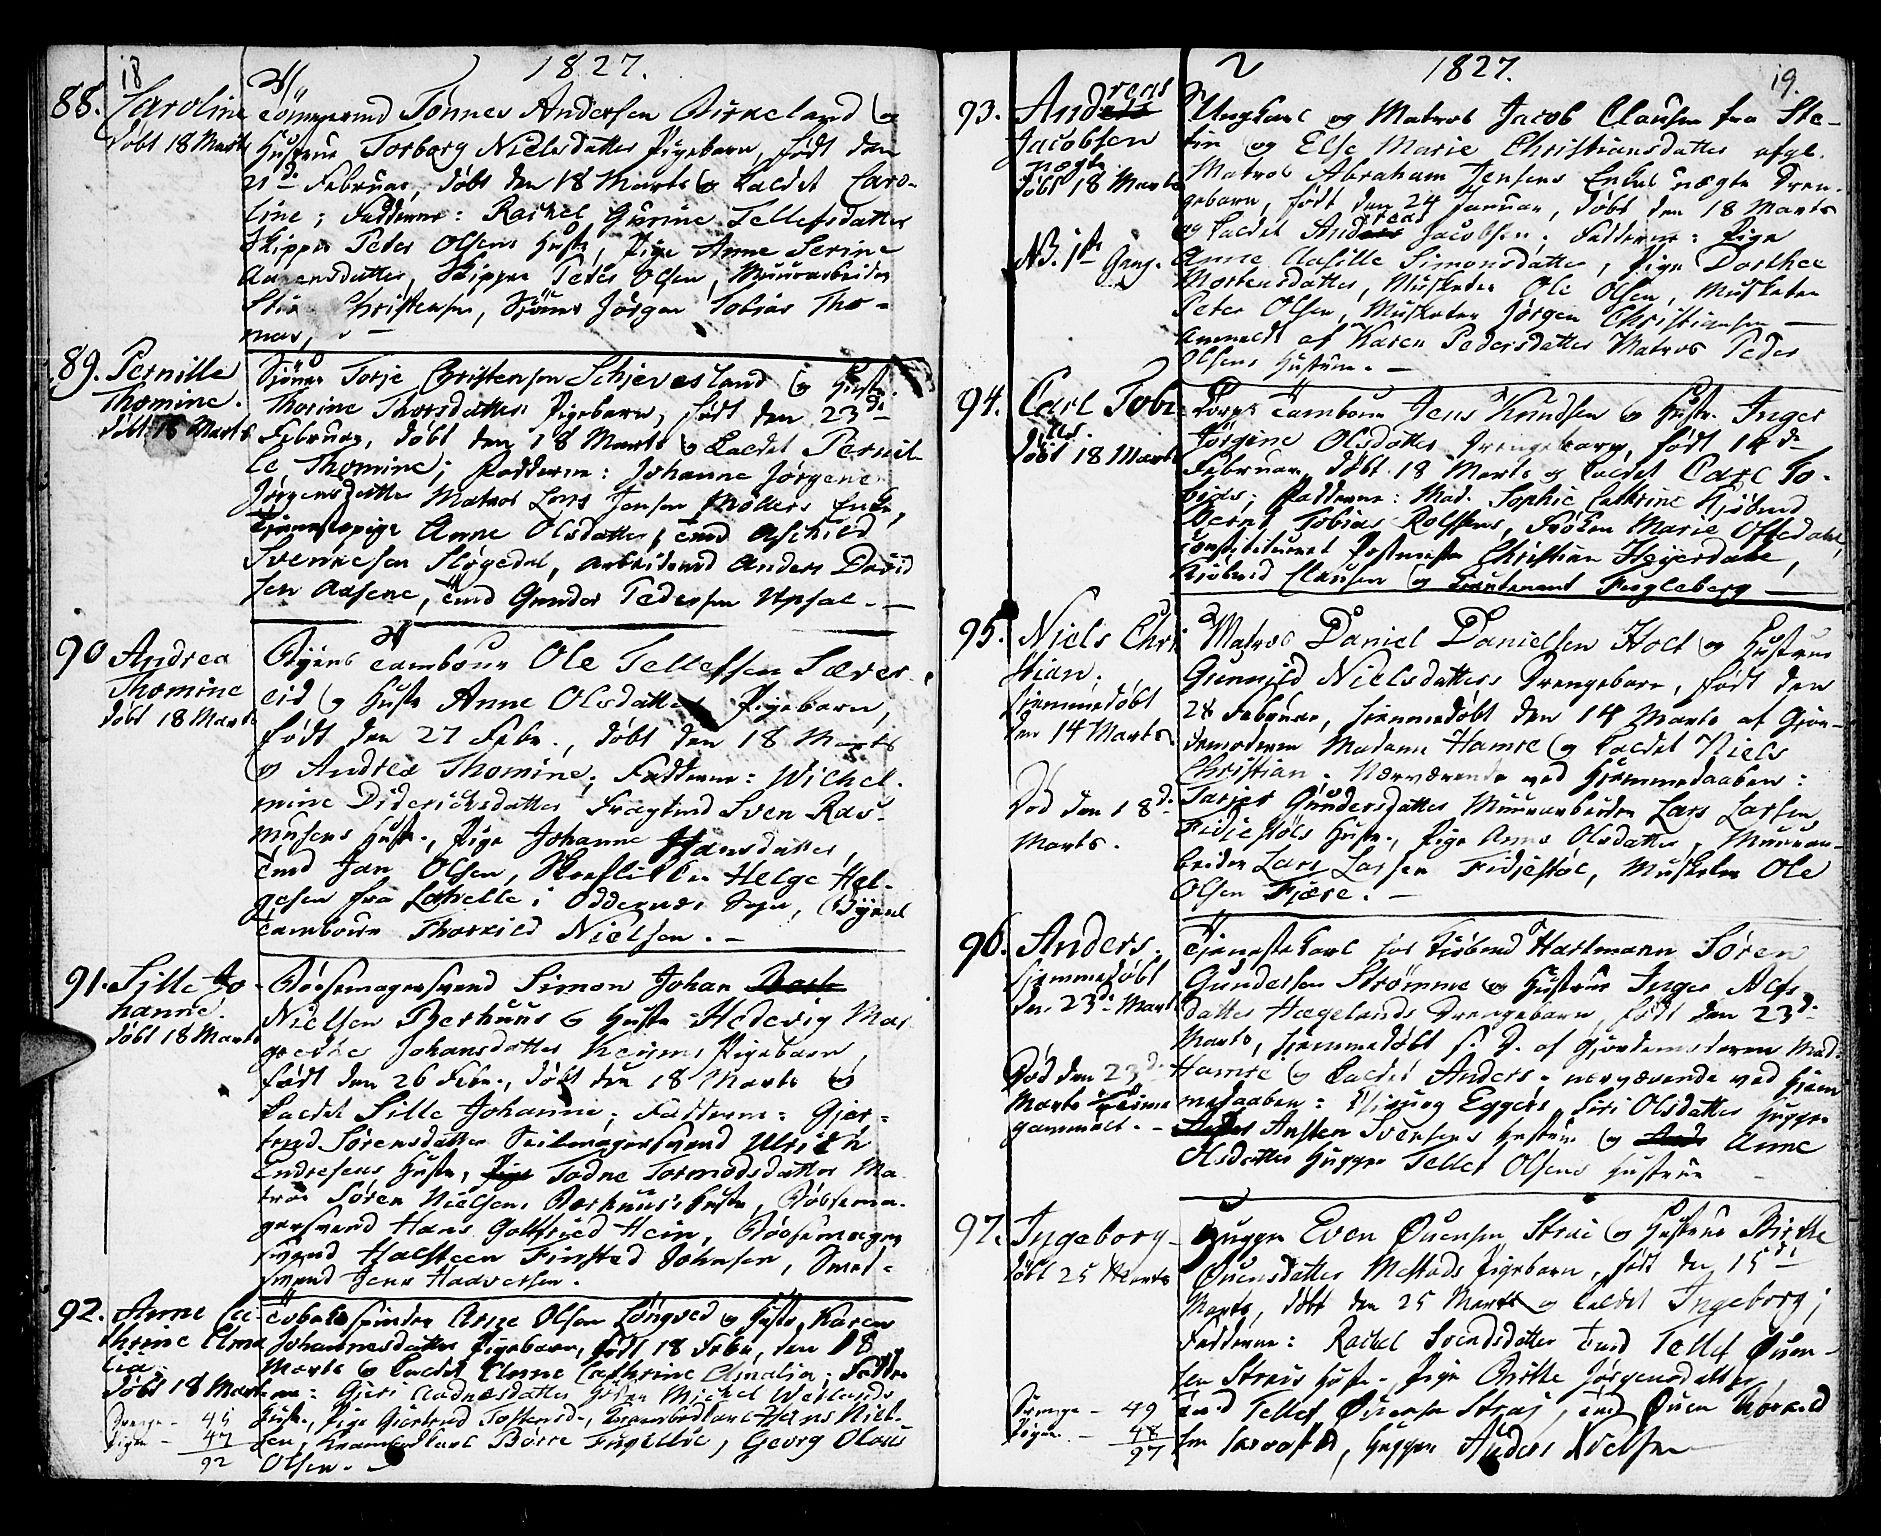 18
1827.
88. Caroline
døbt 18 Marts
Tømmermd Tønnes Andersen Birkeland og
Hustrue Torborg Nielsdatters Pigebarn, født den
21de Februar, døbt den 18 Marts og kaldet Caro-
line; Fadderne: Rachel Gurine Tellefsdatter
Skipper Peder Olsens Hustr, Pige Anne Serine
Aanensdatter, Skipper Peder Olsen, Muurarbeider
Christensen, Sjømd Jørgen Tobias Tho-
mas,
89. Pernille
Thomine.
døbt 18 Marts
Sjømd Torje Christensen Schjevesland og Hustr.
Thorine Thorsdatters Pigebarn, født den 23de
Februar, døbt den 18 Marts og kaldet Pernil-
le Thomine; Fadderne: Johanne Jørgene
Jørgensdatter Matros Lars Jensen Møllers Enke,
Tjenestepige Anne Olsdatter, Tmd Aschild
Svennesen Støgedal, Arbeidsmd Anders David
sen Aasene, Tmd Gunder Pedersen Upsal. —
90 Andrea
Thomine
døbt 18 Marts
Byens Tambour Ole Tellefsen Sæver-
eid og Hustr Anne Olsdatters Pigebarn,
født den 27 Febr., døbt den 18 Marts
og Andrea Thomine; Fadderne: Wichel-
mine Diderichsdatter Fragtmd Sven Ras-
musens Hustr., Pige Johanne Hansdatter,
Tmd Jan Olsen, Helge Hel-
gesen fra i Oddernæs Sogn, Byens
Tambour Thorkild Nielsen. —
91. Sille Jo-
hanne.
døbt 18 Marts
Bøssemagersvend Simon Johan
Nielsen Berhuus og Hustr Hedevig Mar
grethe Johansdatter Pigebarn,
født den 26 Febr., døbt den 18 Marts og
kaldet Sille Johanne; Fadderne: Gjer-
trud Sørensdatter Seilmagersvend Ulrich
Endresens Hustr, Todne Tormodsdatter Ma-
tros Søren Nielsens Berhuus's Hustr, Bøssema-
gersvend Hans Gottfried Hein, Bøssemager
svend Halsteen Finsted Johnsen, Smed-
svend Jens Haaversen.
92. Anne Ca-
thrine Ama
lia.
døbt 18 Marts
Tobaksspinder Arne Olsen Longved og Hustr. Karen
Johannesdatters Pigebarn, født 18 Febr., den 18
Marts og kaldet Anne Cathrine Amalia; Fadder
ne: Gjeri Aadnesdatter Michel Wetlands
Hustr., Pige Giertrud Tostensd., Hans Niel-
sen, Børre Fuglelie, Georg Olaus
Olsen. —
Drenge — 45
Piger — 47
92
1827.
19.
93. Andreas
Jacobsen
uægte
døbt 18 Marts
NB. 1ste Gang.
Ungkarl og Matros Jacob Clausen fra Ste-
tin og Else Marie Christiansdatter afgl.
Matros Abraham Jensens Enkes uægte Dren-
gebarn, født den 24 Januar, døbt den 18 Marts
og kaldet Andreas Jacobsen; Fadderne: Pige
Anne Aasille Simonsdatter, Pige Dorthee
Mortensdatter, Musketer Ole Olsen, Musketer
Peter Olsen, Musketer Jørgen Christiansen —
Anmeldt af Karen Pedersdatter Matros Peder
Olsens Hustrue. —
94. Carl Tobi-
as.
døbt 18 Marts
Corps Tambour Jens Knudsen og Hustr. Inger
Jørgine Olsdatters Drengebarn, født 14de
Februar, døbt 18 Marts og kaldet Carl To-
bias; Fadderne: Mad. Sophie Cathrine Kjøbmd
Bernt Tobias Rolfsens, Frøken Marie Oftedahl,
Constitueret Postmester Christian Heyerdahl,
Kjøbmd Clausen og Lieutenant Fugleberg —
95. Niels Chri
stian.
hjemmedøbt
den 14 Marts.
Død den 18de
Marts.
Matros Daniel Danielsen Holt og Hustrue
Gunnild Nielsdatters Drengebarn, født den
28 Februar, hjemmedøbt den 14 Marts af Gjor-
demoderen Madame Hamre og kaldet Niels
Christian. Nærværende ved Hjemmedaaben:
Tarjer Gundersdatter Muurarbeider Lars Larsen
Fidjestøls Hustr., Pige Anne Olsdatter, Muurar-
beider Lars Larsen Fidjestøl, Musketer Ole
Olsen Fjære. —
96. Anders.
hjemmedøbt
den 23de Marts
Død den 23de
Marts
gammelt. —
Tjenestekarl hos Kjøbmd Hartmann Søren
Gundersen Strømme og Hustrue Inger Alefs
datter Hægelands Drengebarn, født den 23de
Marts, hjemmedøbt s. D. af Gjordemoderen Mad.
Hamre og kaldet Anders; nærværende ved Hjem
medaaben: Eggers, Siri Olsdatter Hugger
Ansten Svensens Hustrue og Anne
Olsdatter Hugger Tellef Olsens Hustrue
97. Ingeborg
døbt 25 Marts
Hugger Even Øuensen Straie og Hustrue Birthe
Øuensdatter Mestads Pigebarn, født den 15de
Marts, døbt den 25 Marts og kaldet Ingeborg;
Fadderne: Rachel Svendsdatter Tmd Tellef Øuen-
sen Straies Hustr., Pige Birthe Jørgensdatter,
Tmd Tellef Øuensen Straj, Tmd Øuen Torkild
sen, Hugger Anders Nielsen
Drenge — 49
Piger — 48
97